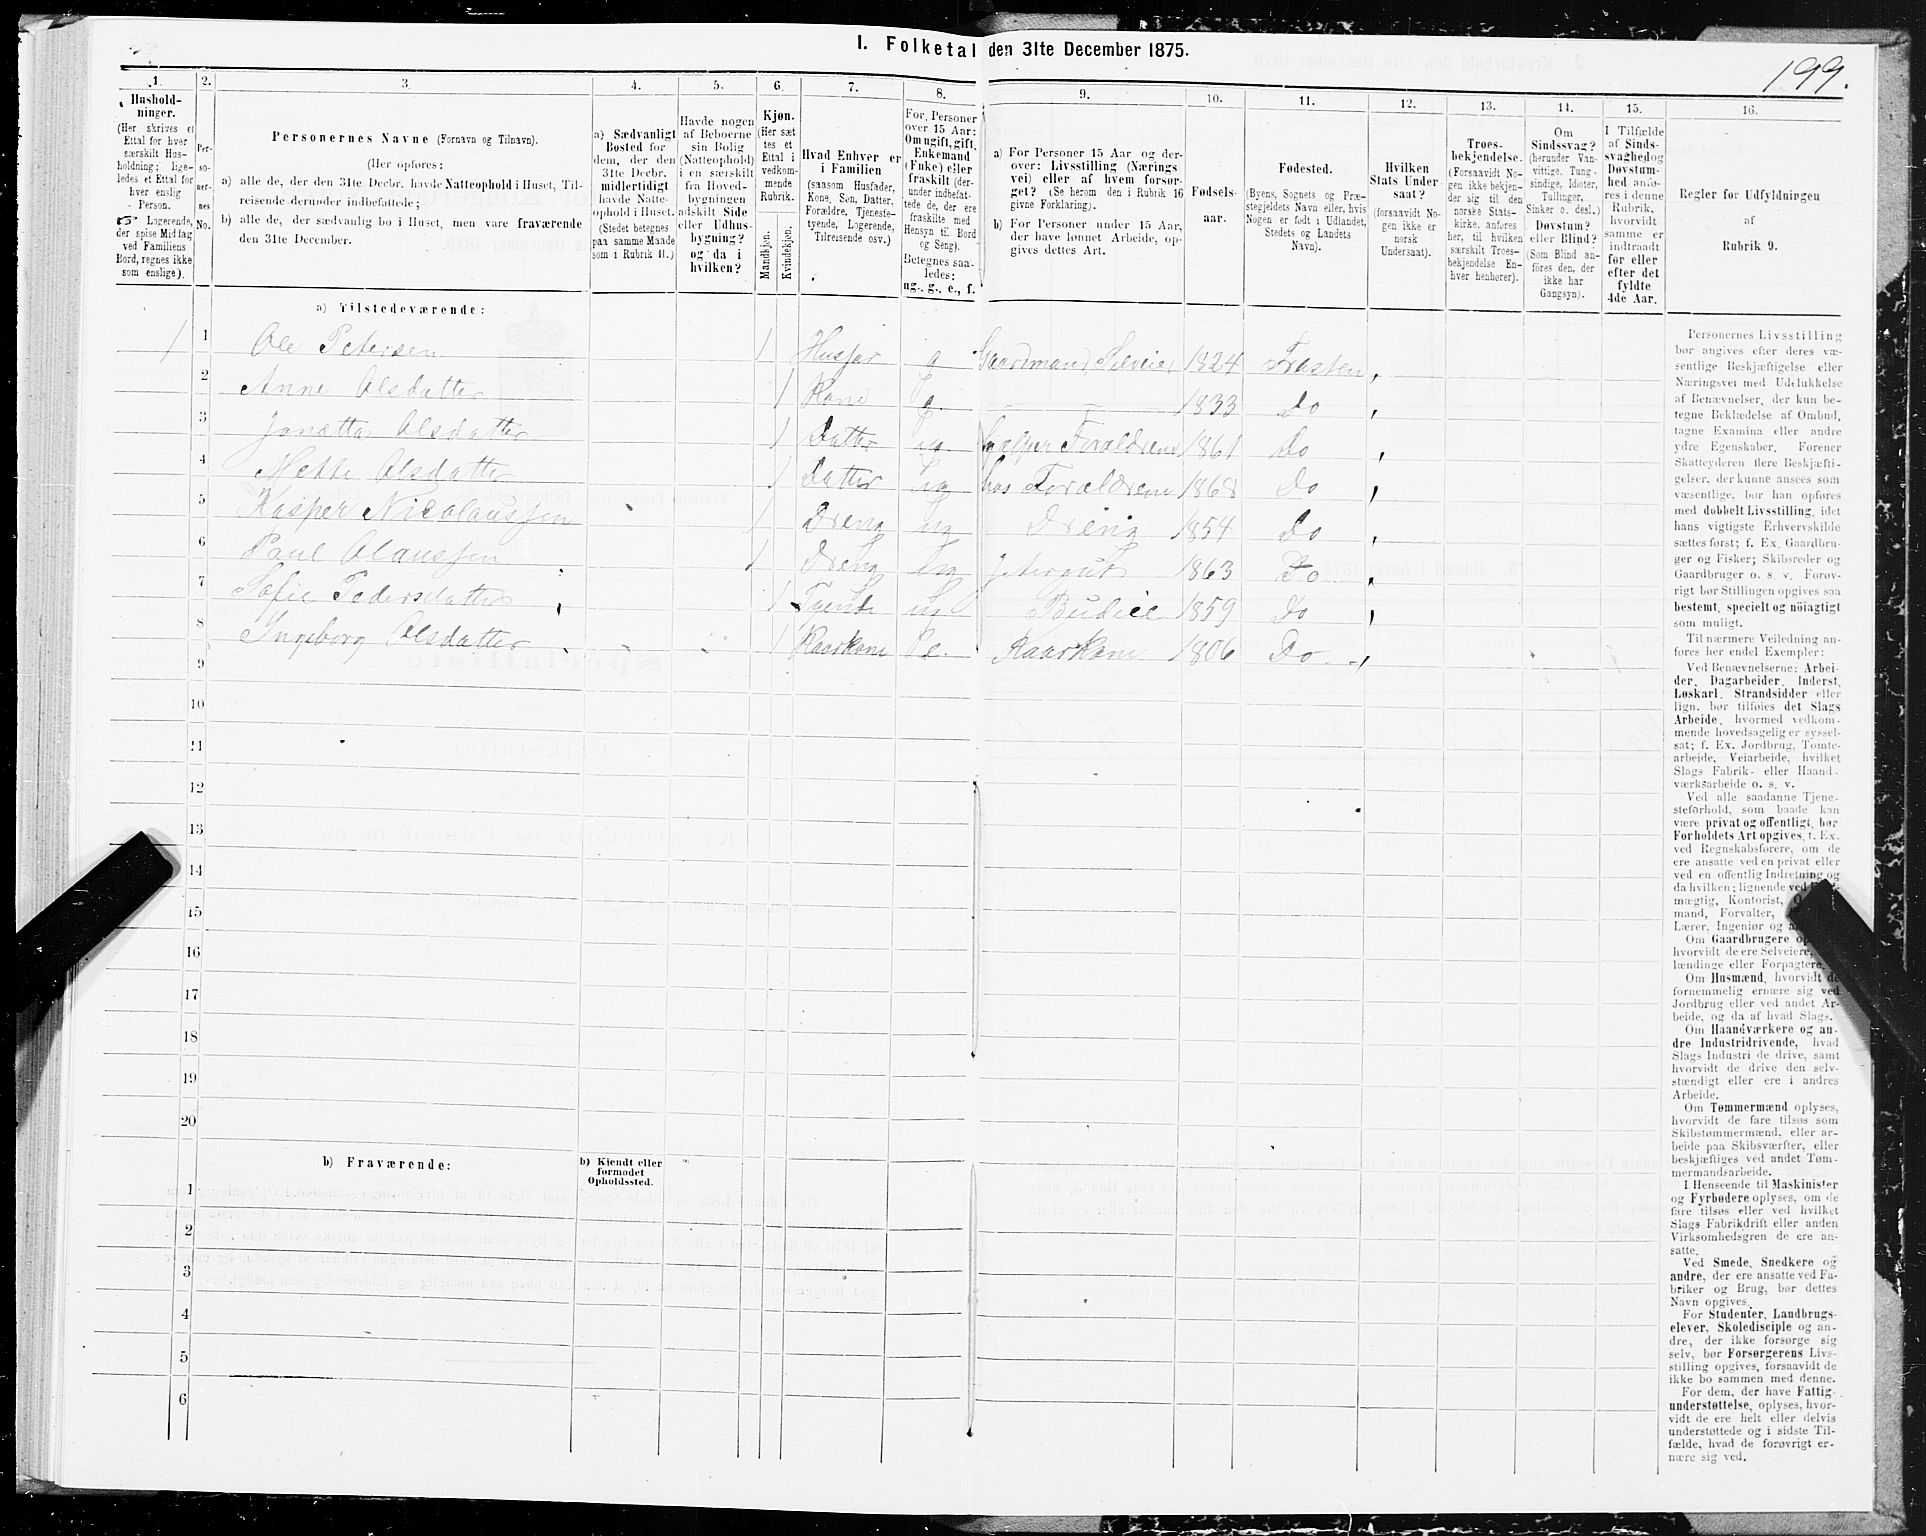 I. Folketal den 31te December 1875.
199.
1. 2. 3. 4. 5. 6. 7. 8. 9. 10. 11. 12. 13. 14. 15. 16.
Hushold-
ninger.
(Her skrives et
Ettal for hver
særskilt Hus-
holdning; lige-
ledes et Ettal for
hver enslig
Person.
☞ Logerende,
der spise Middag
ved Familiens
Bord, regnes ikke
som enslige).
Per-
so-
ner-
nes
No.
Personernes Navne (Fornavn og Tilnavn).
(Her opføres:
a) alle de, der den 31te Decbr. havde Natteophold i Huset, Til-
reisende derunder indbefattede;
b) alle de, der sædvanlig bo i Huset, men vare fraværende
den 31te December.
a) Sædvanligt
Bosted for
dem, der den
31te Decbr.
midlertidigt
havde Natte-
ophold i Huset.
(Stedet betegnes
paa samme Maade
som i Rubrik 11.)
Havde nogen
af Beboerne
sin Bolig
(Natteophold)
i en særskilt
fra Hoved-
bygningen
adskilt Side-
eller Udhus-
bygning?
og da i
hvilken?
Kjøn.
(Her sæt-
tes et
Ettal i
vedkom-
mende
Rubrik.
Mandkjøn.
Kvindekjøn.
Hvad Enhver er
i Familien
(saasom Husfader,
Kone, Søn, Datter,
Forældre, Tjeneste-
tyende, Logerende,
Tilreisende osv.)
For Personer
over 15 Aar:
Om ugift, gift,
Enkemand
(Enke) eller
fraskilt (der-
under indbefat-
tede de, der ere
fraskilte med
Hensyn til Bord
og Seng).
Betegnes saa-
ledes:
ug., g., e., f.
a) For Personer 15 Aar og der-
over: Livsstilling (Nærings-
vei) eller af hvem forsør-
get? (Se herom den i Rubrik 16
givne Forklaring).
b) For Personer under 15 Aar,
der have lønnet Arbeide, op-
gives dettes Art.
Fødsels-
aar.
Fødested.
(Byens, Sognets og Præ-
stegjeldets Navn eller, hvis
Nogen er født i Udlandet,
Stedets og Landets
Navn).
Hvilken
Stats Under-
saat?
(forsaavidt No-
gen ikke er
norsk
Undersaat).
Troes-
bekjendelse.
(Forsaavidt No-
gen ikke bekjen-
der sig til den
norske Stats-
kirke, anføres
her, til hvilken
særskilt Troes-
bekjendelse En-
hver henhører).
Om
Sindssvag?
(herunder Van-
vittige, Tung-
sindige, Idioter,
Tullinger,
Sinker o. desl.)
Døvstum?
eller Blind?
(Som Blind an-
føres den, der
ikke har
Gangsyn).
I Tilfælde
af Sinds-
svaghed og
Døvstum-
hed anfø-
res i denne
Rubrik,
hvorvidt
samme er
indtraadt
før eller
efter det
fyldte
4de Aar.
Regler for Udfyldningen
af
Rubrik 9.
a) Tilstedeværende:
1 1 Ole Petersen 1 Husfar g Gaardmand Selveier 1824 Frosten
2 Anne Olsdatter 1 Kone g 1833 Do
3 Jonetta Olsdatter 1 Datter ug hjælper Forældrene 1861 Do
4 Mette Olsdatter 1 Datter ug hos Forældrene 1868 Do
5 Kasper Nicolaussen 1 Dreng ug Dreng 1854 Do
6 Paul Olaussen 1 Dreng ug Jetergut 1863 Do
7 Sofie Pedersdatter 1 ug Budeie 1859 Do
8 Ingeborg Olsdatter 1 Kaarkone e. Kaarkone 1806 Do
9
10
11
12
13
14
15
16
17
18
19
20
b) Fraværende:
b) Kjendt eller
formodet
Opholdssted.
1
2
3
4
5
6
Personernes Livsstilling
bør angives efter deres væ-
sentlige Beskjæftigelse eller
Næringsvei med Udelukkelse
af Benævnelser, der kun be-
tegne Beklædelse af Ombud,
tagne Examina eller andre
ydre Egenskaber. Forener
Skatteyderen flere Beskjæfti-
gelser, der kunne ansees som
væsentlige, bør han opføres
med dobbelt Livsstilling, idet
hans vigtigste Erhvervskilde
sættes først; f. Ex. Gaardbru-
ger og Fisker; Skibsreder og
Gaardbruger o. s. v. Forøv-
rigt bør Stillingen opgives saa
bestemt, specielt og nøiagtigt
som muligt.
Til nærmere Veiledning an-
føres her endel Exempler:
Ved Benævnelserne: Arbei-
der, Dagarbeider, Inderst,
Løskarl, Strandsidder eller
lign. bør tilføies det Slags
Arbeide, hvormed vedkom-
mende hovedsagelig er syssel-
sat; f. Ex. Jordbrug, Tomte-
arbeide, Veiarbeide, hvilket
Slags Fabrik- eller Haand-
værksarbeide o. s. v.
Ved alle saadanne Tjene-
steforhold, som baade kan
være privat og offentligt, bør
Forholdets Art opgives, t. Ex.
ved Regnskabsførere, om de
ere ansatte ved en privat eller
ved en offentlig Indretning og
da hvilken; lignende ved
mægtig, Kontorist,
mand, Forvalter,
Lærer, Ingeniør og
Om Gaardbrugere
hvorvidt de ere Selveiere,
lændinge eller Forpagtere.
Om Husmænd, hvorvidt de
fornemmelig ernære sig ved
Jordbrug eller ved andet Ar-
beide, og da af hvad Slags.
Om Haandværkere og an-
dre Industridrivende, hvad
Slags Industri de drive, samt
hvorvidt de drive den selv-
stændigt eller ere i andres
Arbeide.
Om Tømmermænd oplyses,
hvorvidt de fare tilsøs som
Skibstømmermænd, eller ar-
beide paa Skibsværfter, eller
beskjæftiges ved andet Tøm-
mermandsarbeide.
I Henseende til Maskinister
og Fyrbødere oplyses, om de
fare tilsøs eller ved hvilket
Slags Fabrikdrift eller anden
Virksomhedsgren de ere an-
satte.
Ved Smede, Snedkere og
andre, der ere ansatte ved Fa-
briker og Brug, bør dettes
Navn opgives.
For Studenter, Landbrugs-
elever, Skoledisciple og an-
dre, der ikke forsørge sig
selv, bør Forsørgerens Livs-
stilling opgives, forsaavidt de
ikke bo sammen med denne.
For dem, der have Fattig-
understøttelse, oplyses, hvor-
vidt de ere helt eller delvis
understøttede og i sidste Til-
fælde, hvad de forøvrigt er-
nære sig ved.